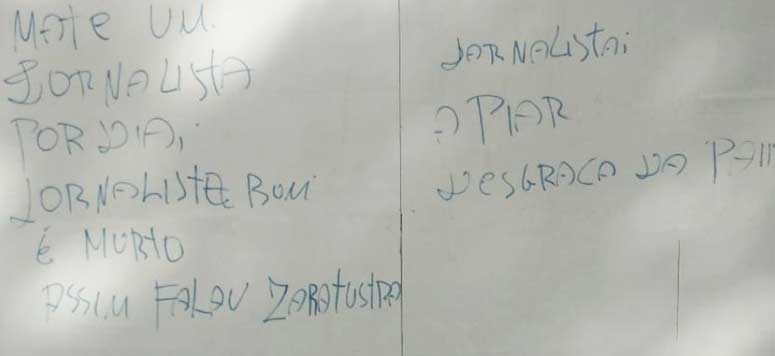 MATE UM
JORNALISTA
POR DIA,
JORNALISTA BOM
É MORTO
ASSIM FALAV ZARATUSTRA
JORNALISTA;
A PIAR
DESGRAÇA DA